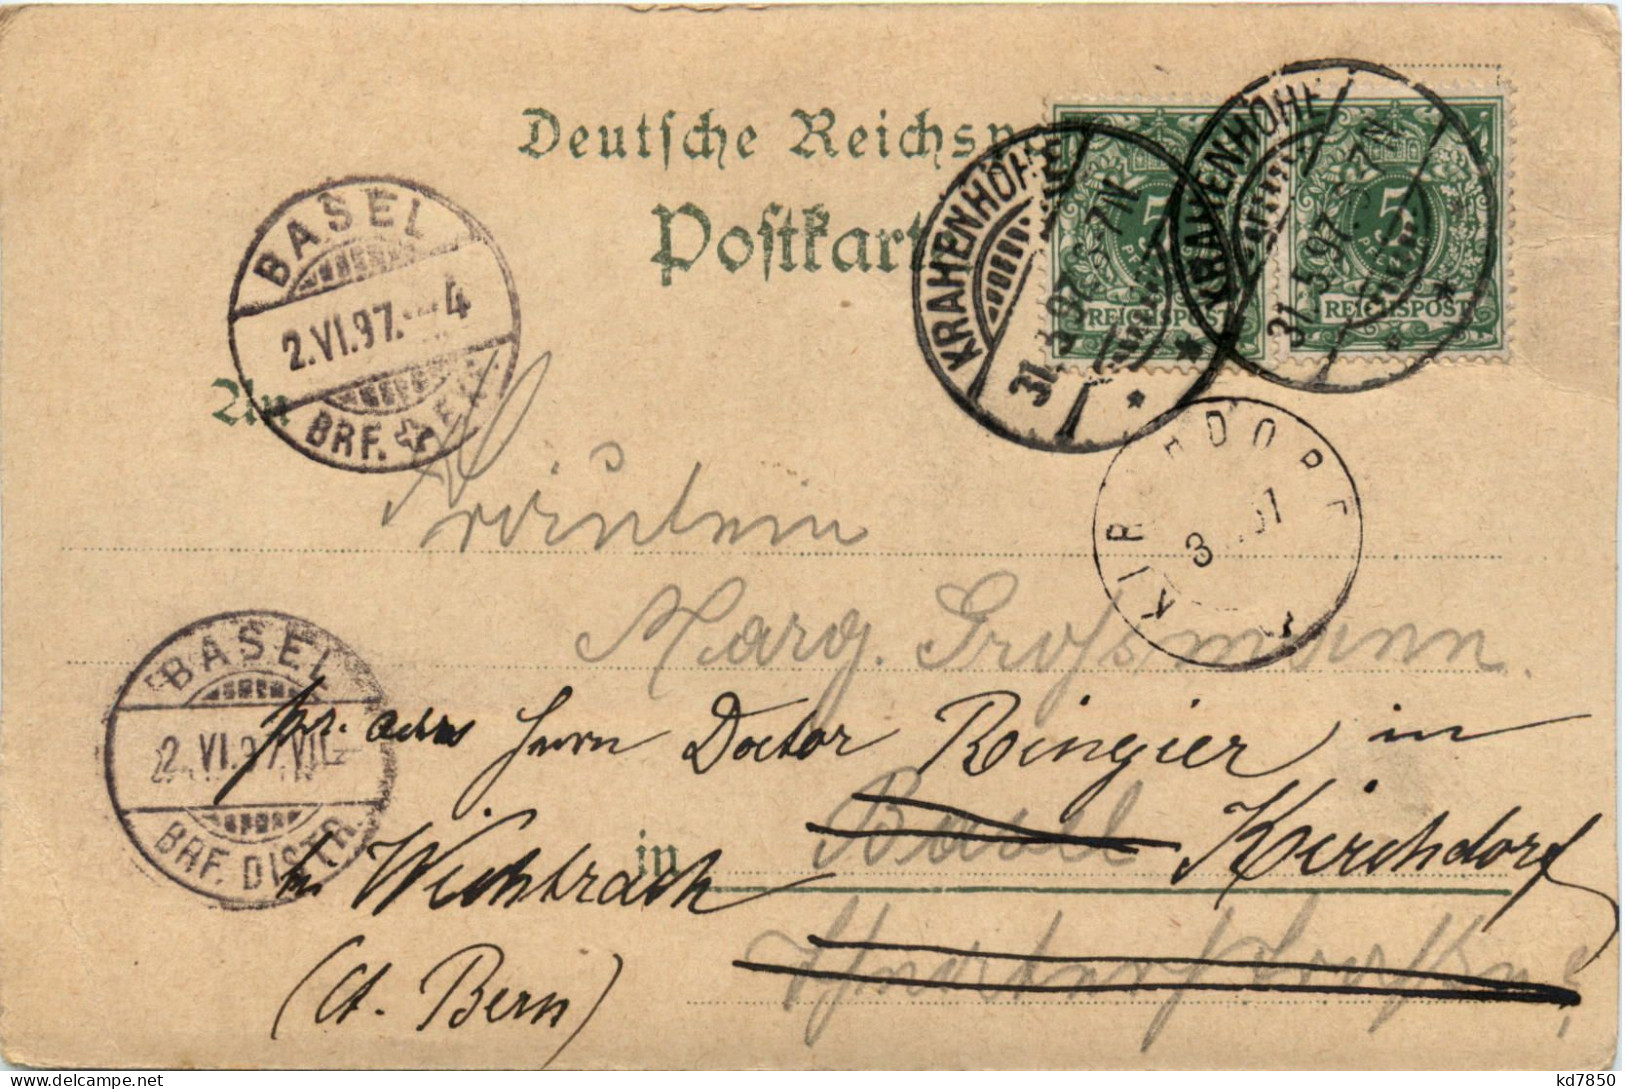 Deutsche Reichsp
Postkart
KRAHENHÖHE
31. 5.97. 7N
KRAHENHÖHE
31. 5.97. 7N
5
REICHSPOST
5
REICHSPOST
BASEL
2.VI.97.—4
BRF.
An
KIRCHDORF
Fräulein
Marg. Grossmann.
BASEL
2.VI.97.VII
BRF. DISTR.
pr. adrs Herrn Doctor Ringier in
in Basel Kirchdorf
bei Wichtrach
(Ct. Bern)
kd7850